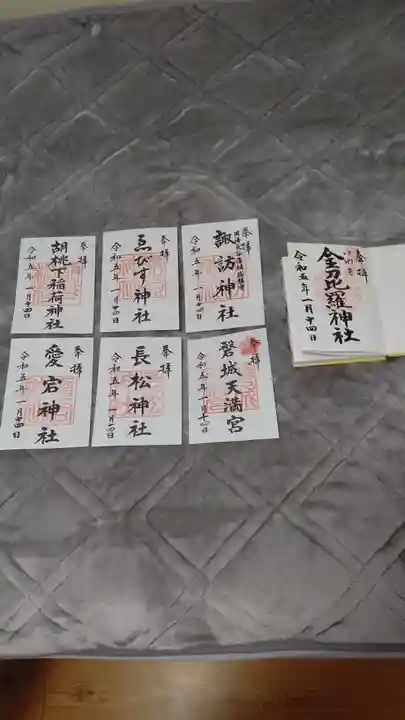 奉拝
胡桃下稲荷神社
令和五年一月十四日
奉拝
ゑびす神社
令和五年一月十四日
奉拝
諏訪神社
令和五年一月十四日
奉拝
いわき
金刀比羅神社
令和五年一月十四日
奉拝
愛宕神社
令和五年一月十四日
奉拝
長松神社
令和五年一月十四日
奉拝
磐城天満宮
令和五年一月十四日